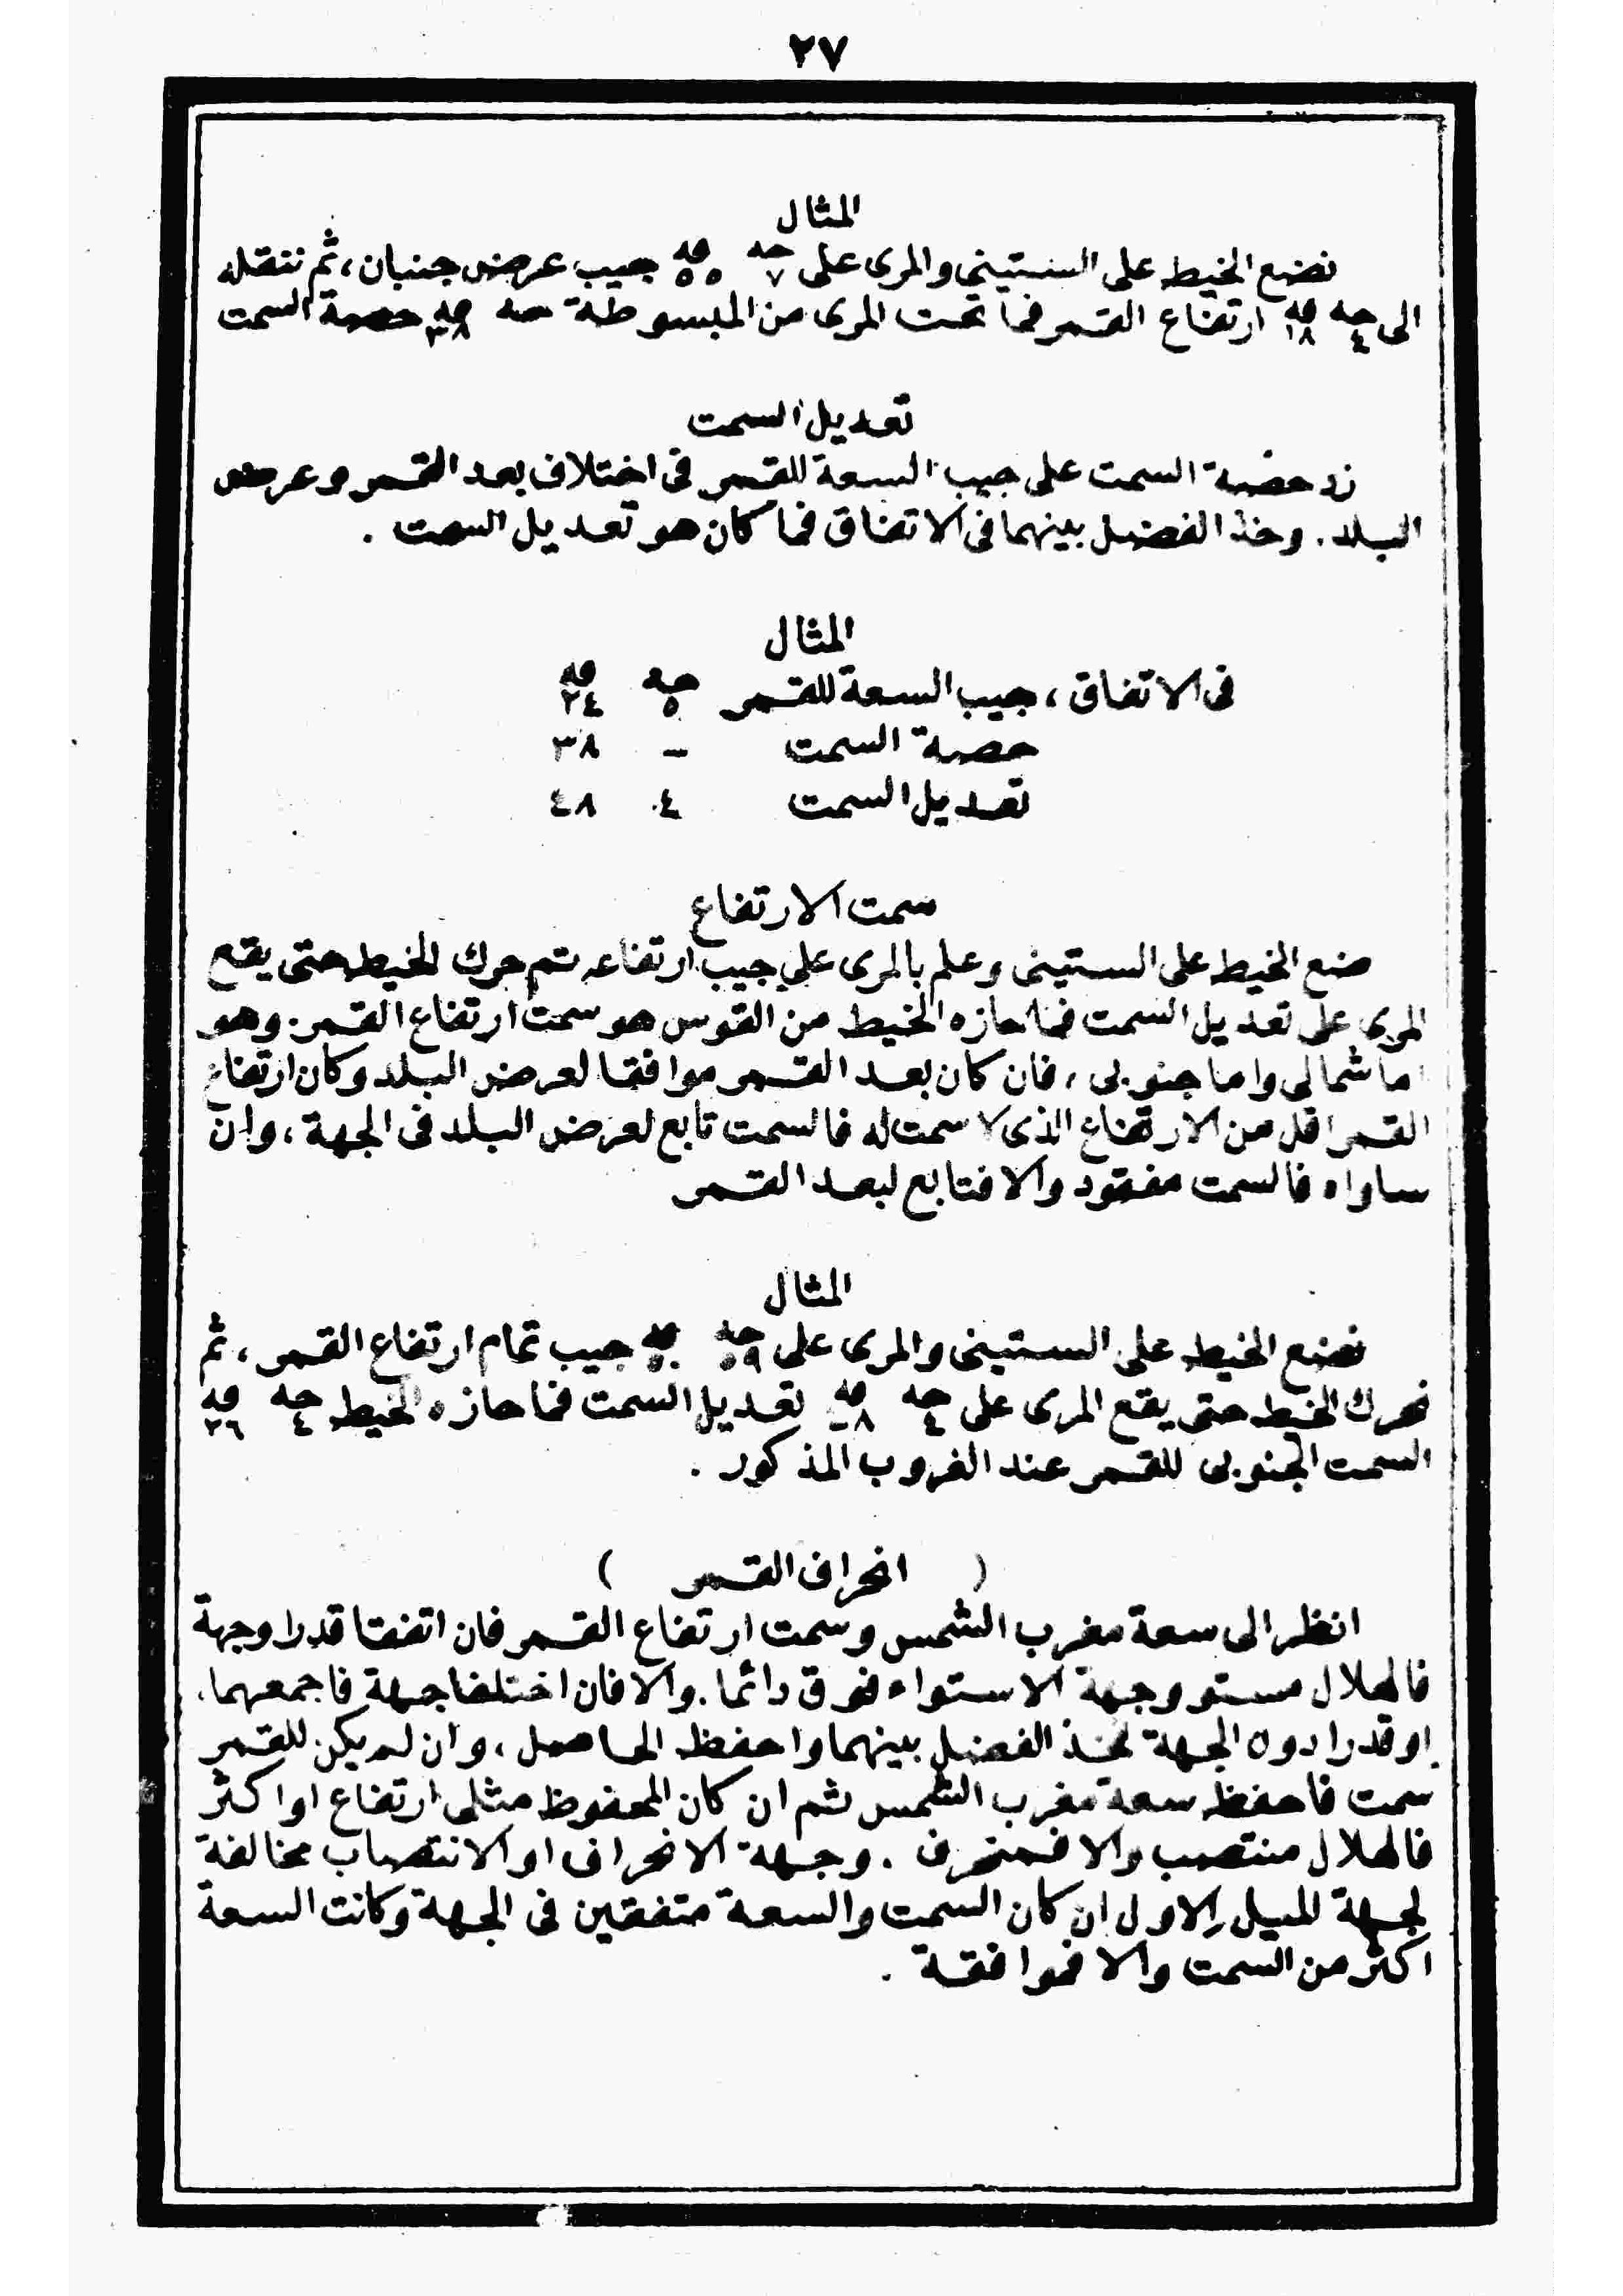 ٢٧
المثال
نضع الخيط على الستينى والمرى على جه ٧ قه ٥٥ جيب عرض جنبان، ثم ننقله
الى جه ٤ قه ١٨ ارتفاع القمر فما تحت المرى من المبسوطة جه قه ٣٨ حصة السمت
تعديل السمت
زد حصة السمت على جيب السعة للقمر فى اختلاف بعد القمر وعرض
البلد. وخذ الفضل بينهما فى الاتفاق فما كان هو تعديل السمت .
المثال
فى الاتفاق، جيب السعة للقمر جه ٥ قه ٢٤
حصة السمت – ٣٨
تعديل السمت ٤ ٤٨
سمت الارتفاع
ضع الخيط على الستينى وعلم بالمرى على جيب ارتفاعه ثم حرك الخيط حتى يقع
المرى على تعديل السمت فما حازه الخيط من القوس هو سمت ارتفاع القمر. وهو
اما شمالى واما جنوبى، فان كان بعد القمر موافقا لعرض البلد وكان ارتفاع
القمر اقل من الارتفاع الذى لا سمت له فالسمت تابع لعرض البلد فى الجهة، وان
ساواه فالسمت مفقود والا فتابع لبعد القمر
المثال
نضع الخيط على الستينى والمرى على جه ٥٩ قه جيب تمام ارتفاع القمر، ثم
نحرك الخيط حتى يقع المرى على جه ٤ قه تعديل السمت فما حازه الخيط جه ٤ قه ٢٦
السمت الجنوبى للقمر عند الغروب المذكور .
( انحراف القمر )
انظر الى سعة مغرب الشمس وسمت ارتفاع القمر فان اتفقا قدرا وجهة
فالهلال مستو وجهة الاستواء فوق دائما. والا فان اختلفا جهة فاجمعهما.
او قدرا دون الجهة فخذ الفضل بينهما واحفظ الحاصل، وان لم يكن للقمر
سمت فاحفظ سعة مغرب الشمس ثم ان كان المحفوظ مثلى ارتفاع او اكثر
فالهلال منتصب والا فمنحرف . وجهة الانحراف او الانتصاب مخالفة
لجهة الميل الاول ان كان السمت والسعة متفقين فى الجهة وكانت السعة
اكثر من السمت والا فموافقة .